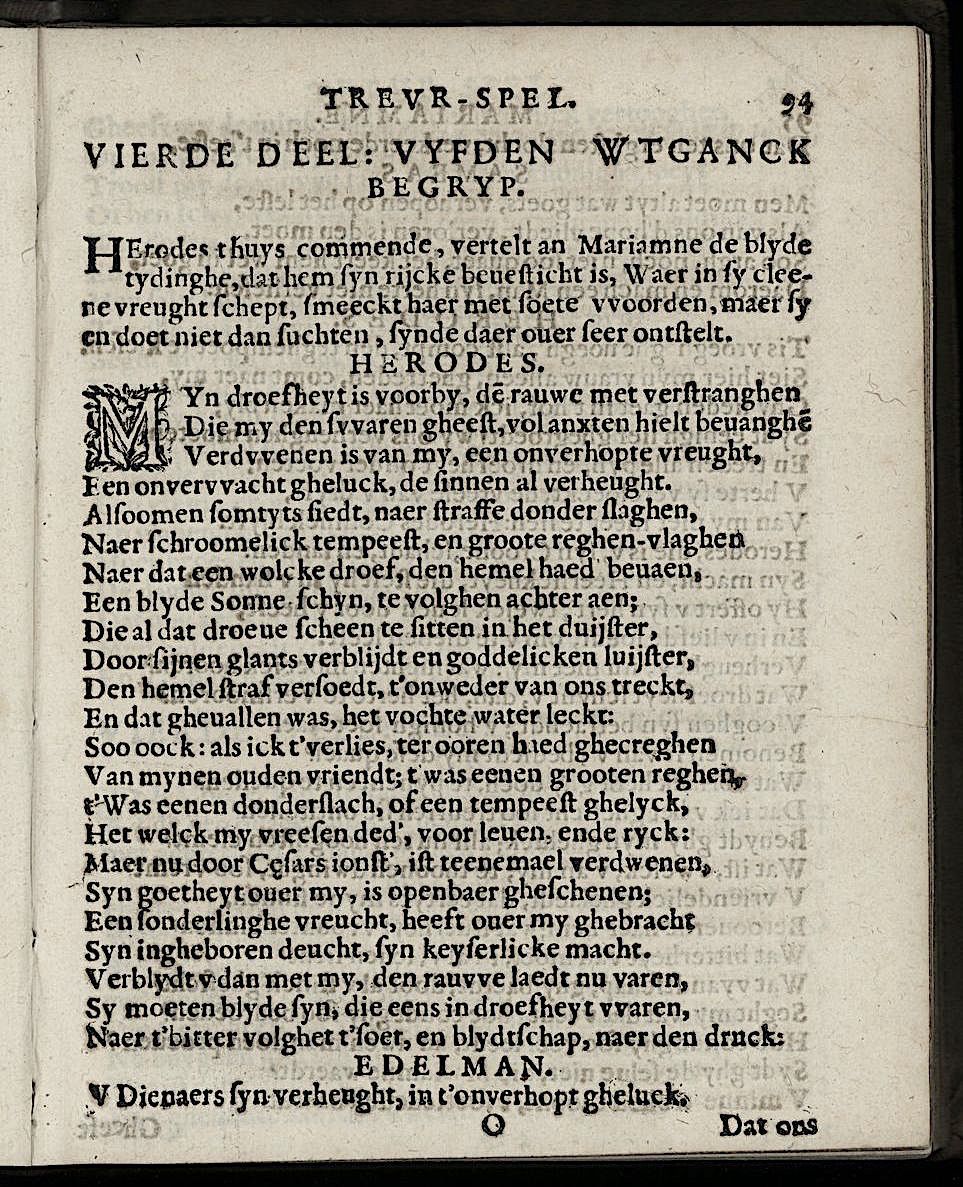 TREVR-SPEL. 94
VIERDE DEEL: VYFDEN WTGANCK
BEGRYP.
HErodes thuys commende, vertelt an Mariamne de blyde
tydinghe, dat hem ſyn rijcke beueſticht is, Waer in ſy clee-
ne vreught ſchept, ſmeeckt haer met ſoete vvoorden, maer ſy
en doet niet dan ſuchten, ſynde daer ouer ſeer ontſtelt.
HERODES.
MYn droefheyt is voorby, dē rauwe met verſtranghen
Die my den ſvvaren gheeſt, vol anxten hielt beuanghē
Verdvvenen is van my, een onverhopte vreught,
Een onvervvacht gheluck, de ſinnen al verheught.
Alſoomen ſomtyts ſiedt, naer ſtraffe donder ſlaghen,
Naer ſchroomelick tempeeſt, en groote reghen-vlaghen
Naer dat een wolcke droef, den hemel haed' beuaen,
Een blyde Sonne-ſchyn, te volghen achter aen;
Die al dat droeue ſcheen te ſitten in het duijſter,
Door ſijnen glants verblijdt en goddelicken luijſter,
Den hemel ſtraf verſoedt, t'onweder van ons treckt,
En dat gheuallen was, het vochte water leckt:
Soo oock: als ick t'verlies, ter ooren haed ghecreghen
Van mynen ouden vriendt; t'was eenen grooten reghen,
t'Was eenen donderſlach, of een tempeeſt ghelyck,
Het welck my vreeſen ded', voor leuen, ende ryck:
Maer nu door Cęſars ionſt', iſt teenemael verdwenen,
Syn goetheyt ouer my, is openbaer gheſchenen;
Een ſonderlinghe vreucht, heeft ouer my ghebracht
Syn ingheboren deucht, ſyn keyſerlicke macht.
Verblydt v dan met my, den rauvve laedt nu varen,
Sy moeten blyde ſyn, die eens in droefheyt vvaren,
Naer t'bitter volghet t'ſoet, en blydtſchap, naer den druck:
EDELMAN.
V Dienaers ſyn verheught, in t'onverhopt gheluck.
O Dat ons